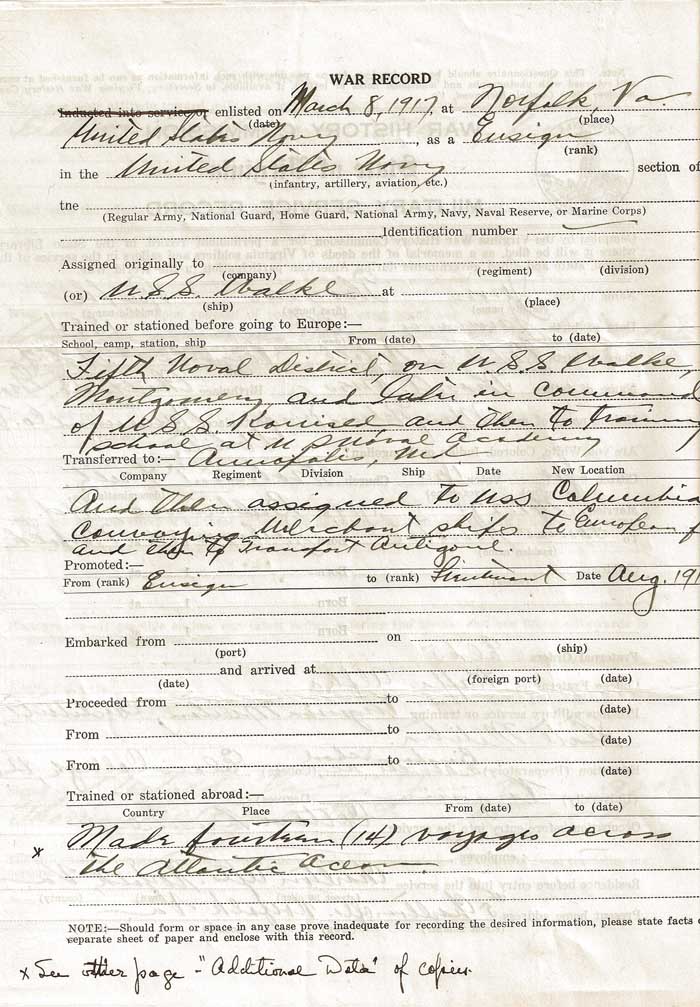 WAR RECORD
Inducted into service or enlisted on March 8, 1917, at Norfolk, Va.
(date) (place)
United States Navy, as a Ensign
(rank)
in the United States Navy section of
(infantry, artillery, aviation, etc.)
tne
(Regular Army, National Guard, Home Guard, National Army, Navy, Naval Reserve, or Marine Corps)
Identification number
Assigned originally to
(company) (regiment) (division)
(or) U.S.S. Walke at
(ship) (place)
Trained or stationed before going to Europe:—
School, camp, station, ship From (date) to (date)
Fifth Naval District, on U.S.S. Walke,
Montgomery and later in command
of U.S.S. and then to training
school at U S Naval Academy
Transferred to:— Annapolis, Md
Company Regiment Division Ship Date New Location
And then assigned to USS Columbia
convoying Merchant ships to European
and then to Transport Antigone.
Promoted:—
From (rank) Ensign to (rank) Lieutenant Date Aug. 191
Embarked from on
(port) (ship)
and arrived at
(date) (foreign port) (date)
Proceeded from to
(date)
From to
(date)
From to
(date)
Trained or stationed abroad:—
Country Place From (date) to (date)
x Made fourteen (14) voyages across
the Atlantic Ocean.
NOTE:—Should form or space in any case prove inadequate for recording the desired information, please state facts o
separate sheet of paper and enclose with this record.
x See other page - "Additional Data" of copies.